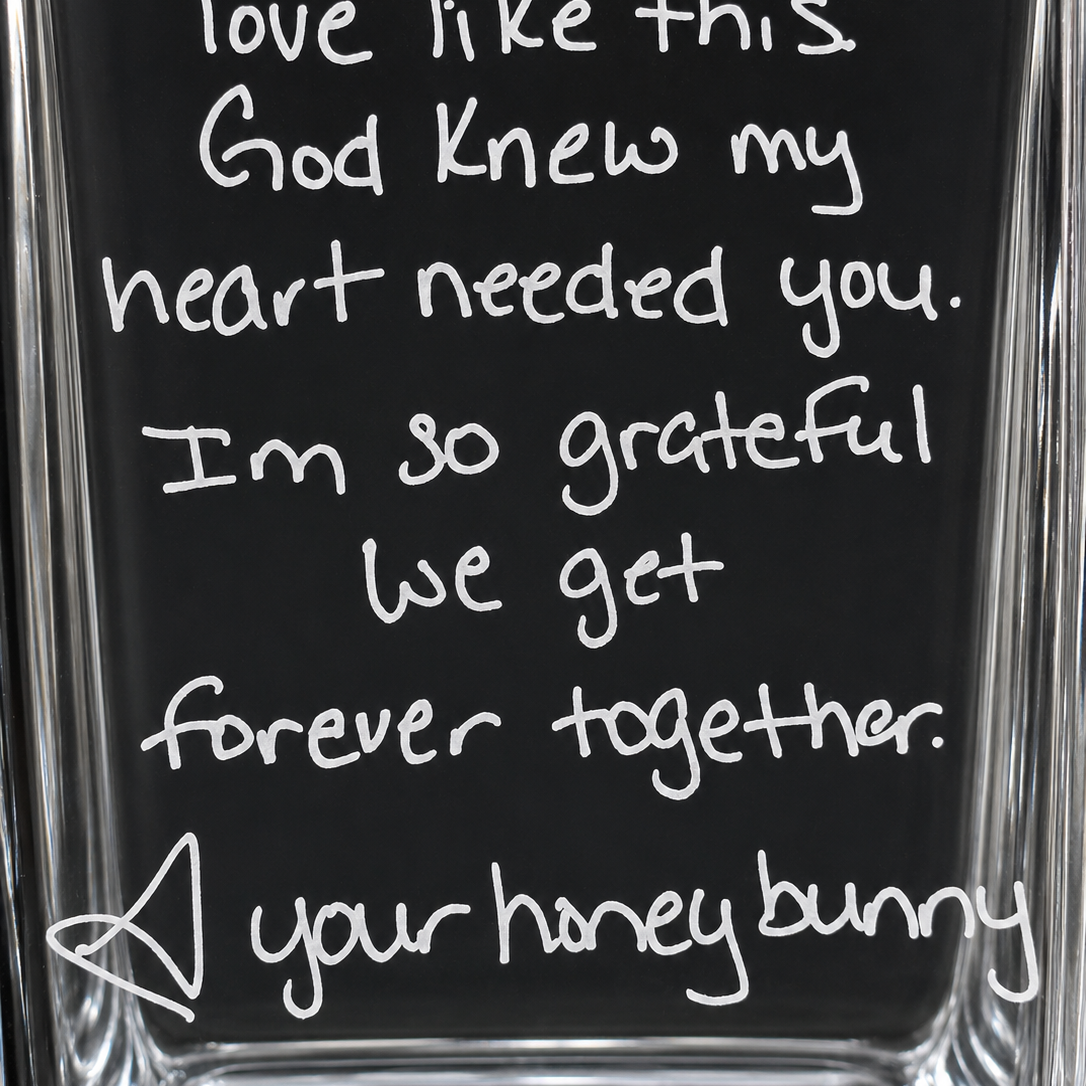 love like this
God knew my
heart needed you.
Im so grateful
we get
forever together.
your honey bunny